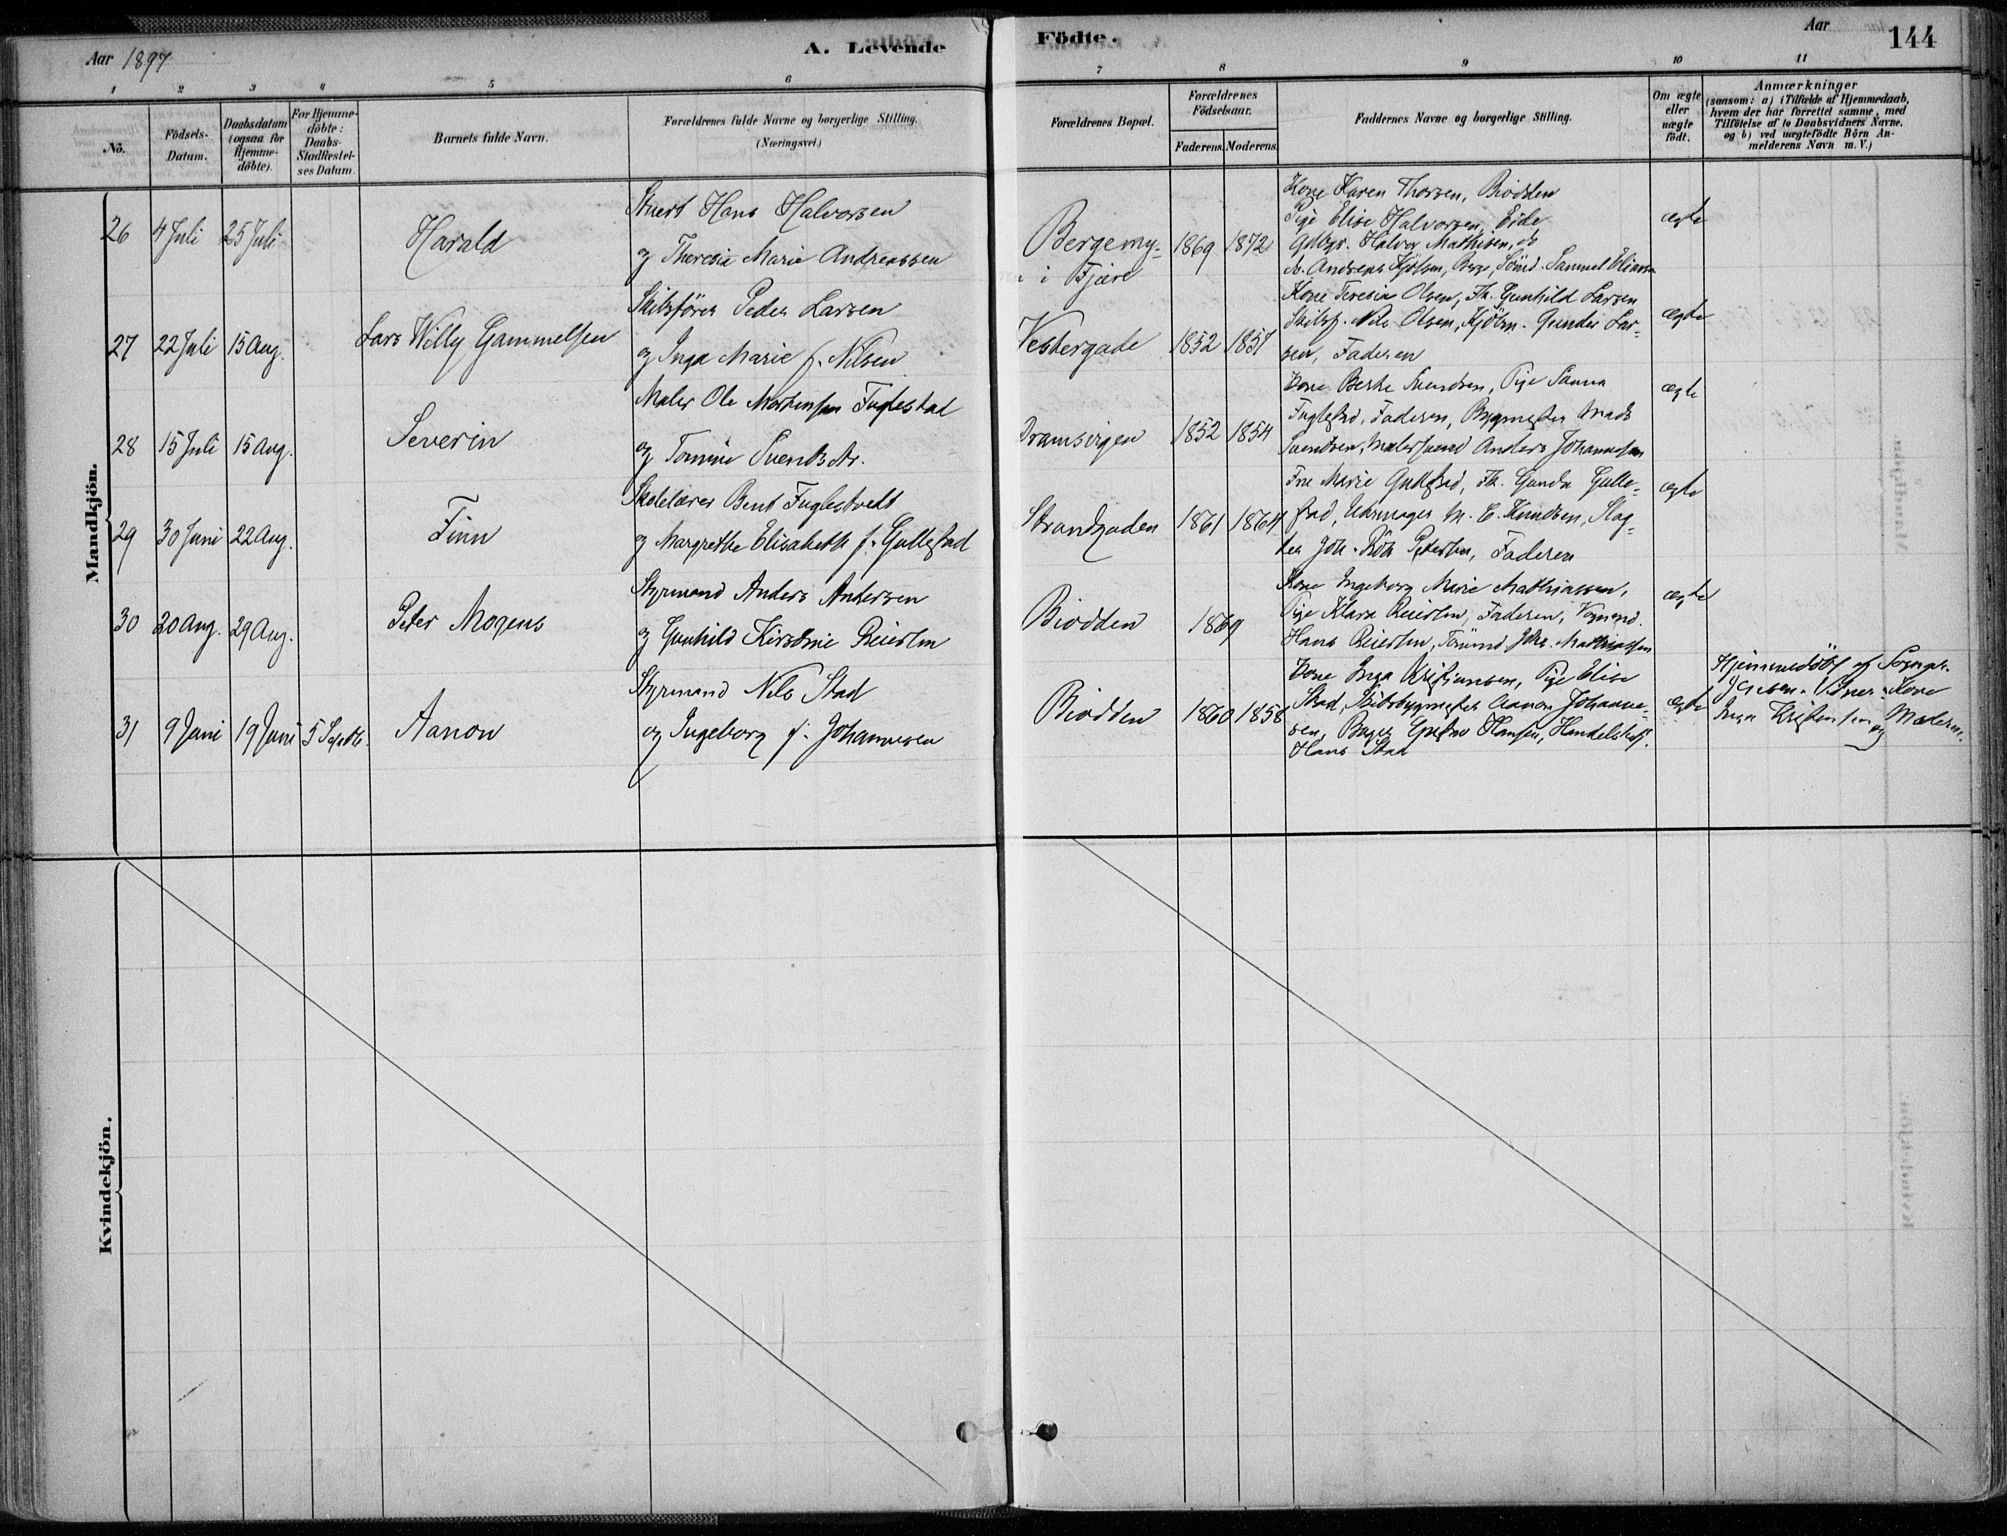 Aar 1897
A. Levende
Födte.
Aar
144
1 2 3 4 5 6 7 8 9 10 11
No.
Födsels-Datum.
Daabsdatum (ogsaa for Hjemme-döbte).
For Hjemme-döbte: Daabs-Stadfæstel-ses Datum.
Barnets fulde Navn.
Forældrenes fulde Navne og borgerlige Stilling. (Næringsvei.)
Forældrenes Bopæl.
Forældrenes Födselsaar.
Faderens. Moderens.
Faddernes Navne og borgerlige Stilling.
Om ægte eller uægte födt.
Anmærkninger
(saasom: a) i Tilfælde af Hjemmedaab,
hvem der har forrettet samme, med
Tilföielse af to Daabsvidners Navne,
og b) ved uægtefödte Börn An-
melderens Navn m. V.)
Mandkjön.
26 4 Juli 25 Juli Harald
Stuert Hans Halvorsen
og Theresia Marie Andreassen
Bergemy-
i Fjære
1869 1872
Kone Karen Thorsen, Biodden
Pige Elise Halvorsen, Eide
Gdbgr. Halvor Mathisen, do
Andreas Berge, Samuel
ægte
27 22 Juli 15 Aug. Lars Willy Gammelsen
Skibsförer Peder Larsen
og Inga Marie f. Nilsen
Vestergade 1852 1857
Kone Teresia Olsen, Fk. Gunhild Larsen
Skibsf. Nils Olsen, Kjöbm. Gunder Lar-
sen, Faderen
ægte
28 15 Juli 15 Aug. Severin
Maler Ole Mortensen Fuglestad
og Tomine Svendsdtr.
Dramsvigen 1852 1854
Kone Berthe Svendsen, Pige Sanna
Fuglestad, Faderen, Bygmester Mads
Svendsen, Malersvend Anders Johannesen
ægte
29 30 Juni 22 Aug. Finn
Skolelærer Bent Fuglestvedt
og Margrethe Elisabeth f. Gullestad
Strandgaden 1861 1864
Fru Marie Gullestad, Fk. Gunda Gulle-
stad, Uhrmager M. C. Knudsen, Slag-
ter Joh. Petersen, Faderen
ægte
30 20 Aug. 29 Aug. Peter Mogens
Styrmand Anders Andersen
og Gunhild Kirstine Reiersen
Biodden 1869
Kone Ingeborg Marie Mathiassen,
Pige Klara Reiersen, Faderen,
Hans Reiersen, Tömmd. Johs. Mathiassen
ægte
31 9 Juni 19 Juni 5 Septb. Aanon
Styrmand Nils Stad
og Ingeborg f. Johannesen
Biodden 1860 1858
Kone Inga Kristiansen, Pige Elise
Stad, Skibsbygmester Aanon Johanne-
sen, Bager Hansen, Handelsbetj.
Hans Stad
ægte
Hjemmedöbt af Sognepr.
Vidner: Kone
Inga Kristensen og Moderen.
Kvindekjön.